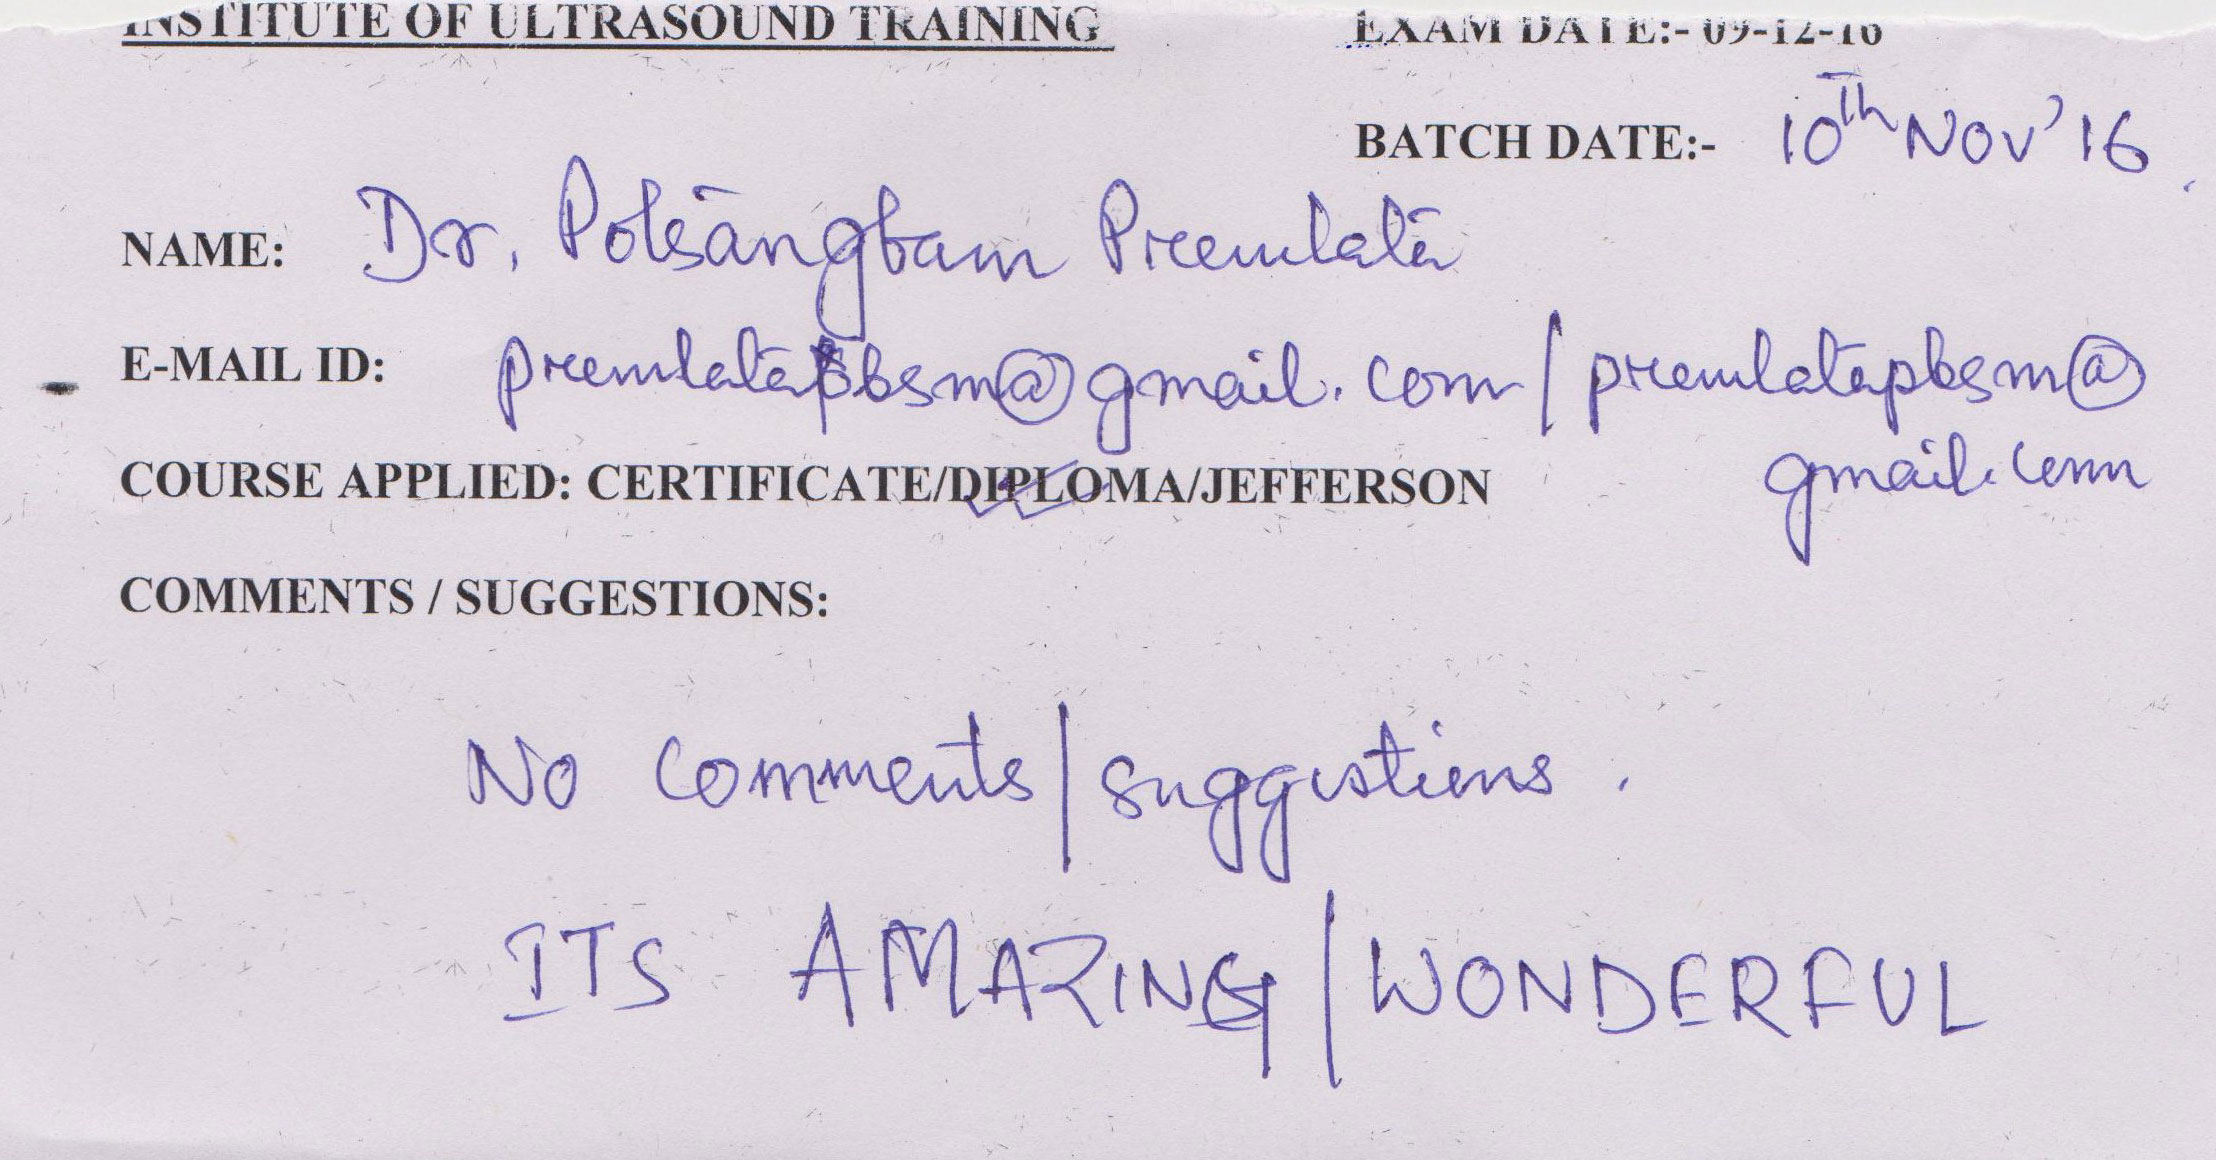 INSTITUTE OF ULTRASOUND TRAINING
EXAM DATE:- 09-12-16
BATCH DATE:- 10th NOV' 16
NAME: Dr. Potsangbam Premlata
E-MAIL ID: premlatapbsm@gmail.com / premlatapbsm@
gmail.com
COURSE APPLIED: CERTIFICATE/DIPLOMA/JEFFERSON
COMMENTS / SUGGESTIONS:
No Comments / suggestions.
ITS AMAZING / WONDERFUL